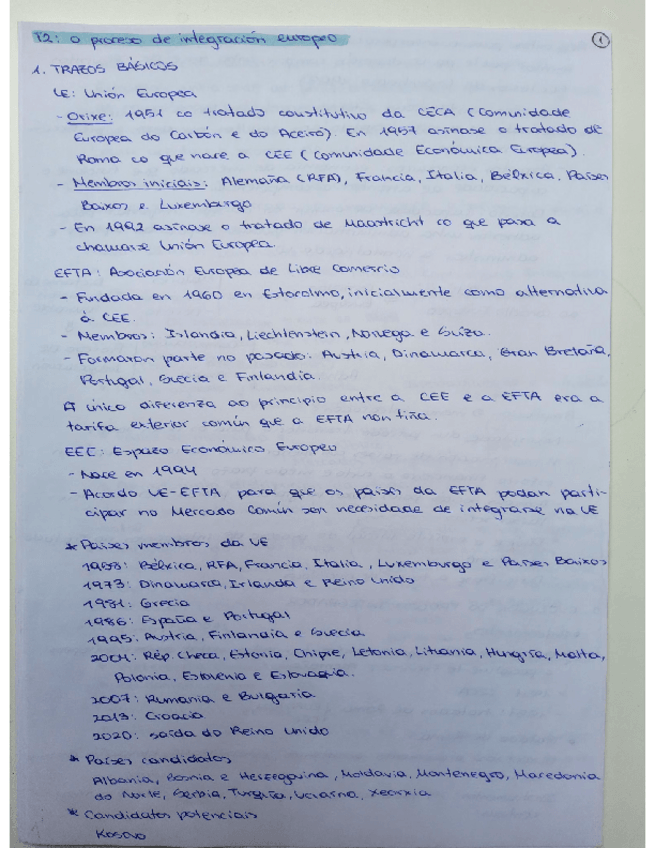 T2: o proceso de integración europeo
1
1. TRAZOS BÁSICOS
UE: Unión Europea
- Orixe: 1951 co tratado constitutivo da CECA (Comunidade
Europea do Carbón e do Aceiro). En 1957 asínase o tratado de
Roma co que nace a CEE (Comunidade Económica Europea).
- Membros iniciais: Alemaña (RFA), Francia, Italia, Bélxica, Países
Baixos e Luxemburgo
- En 1992 asínase o tratado de Maastricht co que pasa a
chamarse Unión Europea.
EFTA: Asociación Europea de Libre Comercio
- Fundada en 1960 en Estocolmo, inicialmente como alternativa
á CEE.
- Membros: Islandia, Liechtenstein, Noruega e Suíza.
- Formaron parte no pasado: Austria, Dinamarca, Gran Bretaña,
Portugal, Suecia e Finlandia.
A única diferenza ao principio entre a CEE e a EFTA era a
tarifa exterior común que a EFTA non tiña.
EEC: Espazo Económico Europeo
- Nace en 1994
- Acordo UE-EFTA para que os países da EFTA podan parti-
cipar no Mercado Común sen necesidade de integrarse na UE
* Países membros da UE
Bélxica, RFA, Francia, Italia, Luxemburgo e Países Baixos
1973: Dinamarca, Irlanda e Reino Unido
1981: Grecia
1986: España e Portugal
1995: Austria, Finlandia e Suecia
2004: Rep. Checa, Estonia, Chipre, Letonia, Lituania, Hungría, Malta,
Polonia, Eslovenia e Eslovaquia.
2007: Rumanía e Bulgaria
2013: Croacia
2020: saída do Reino Unido
* Países candidatos
Albania, Bosnia e Herzegovina, Moldavia, Montenegro, Macedonia
do Norte, Serbia, Turquía, Ucraína, Xeorxia
* Candidatos potenciais
Kosovo